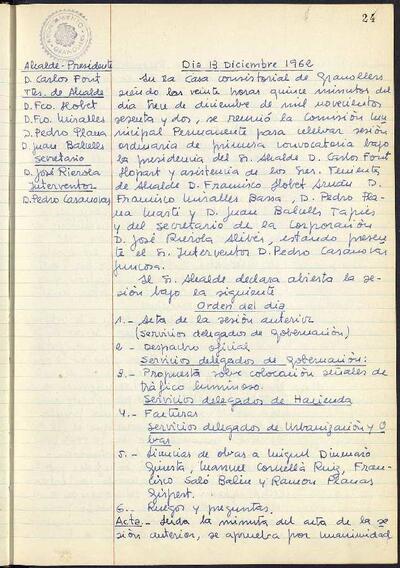 24
Alcalde-Presidente
D. Carlos Font
Ttes. de Alcalde
D. Fco. Llobet
D. Fco. Miralles
D. Pedro Plana
D. Juan Babells
Secretario
D. José Rierola
Interventor
D. Pedro Casanovas
Dia 13 Diciembre 1962
En la Casa consistorial de Granollers
siendo las veinte horas quince minutos del
día trece de diciembre de mil novecientos
sesenta y dos, se reunió la Comisión Mu
nicipal Permanente para celebrar sesión
ordinaria de primera convocatoria bajo
la presidencia del Sr. Alcalde D. Carlos Font
Llopart y asistencia de los Sres. Tenientes
de Alcalde D. Francisco Llobet Arnán D.
Francisco Miralles Bassa, D. Pedro Pla
na Martí y D. Juan Babells Tapiés
y del Secretario de la Corporación
D. José Rierola Alibés, estando presen
te el Sr. Interventor D. Pedro Casanovas
Juncosa.
El Sr. Alcalde declara abierta la se
sión bajo la siguiente
Orden del dia
1.- Acta de la sesión anterior
(Servicios delegados de Gobernación)
2.- Despacho oficial
Servicios delegados de Gobernación:
3.- Propuesta sobre colocación señales de
tráfico luminoso.
Servicios delegados de Hacienda
4.- Facturas
Servicios delegados de Urbanización y O
bras
5.- Licencias de obras a Miguel
Giusta, Manuel Comellà Ruiz, Fran
cisco Saló Baliu y Ramon Planas
Gispert.
6.- Ruegos y preguntas.
Acta.- Leida la minuta del acta de la se
sión anterior, se aprueba por unanimidad